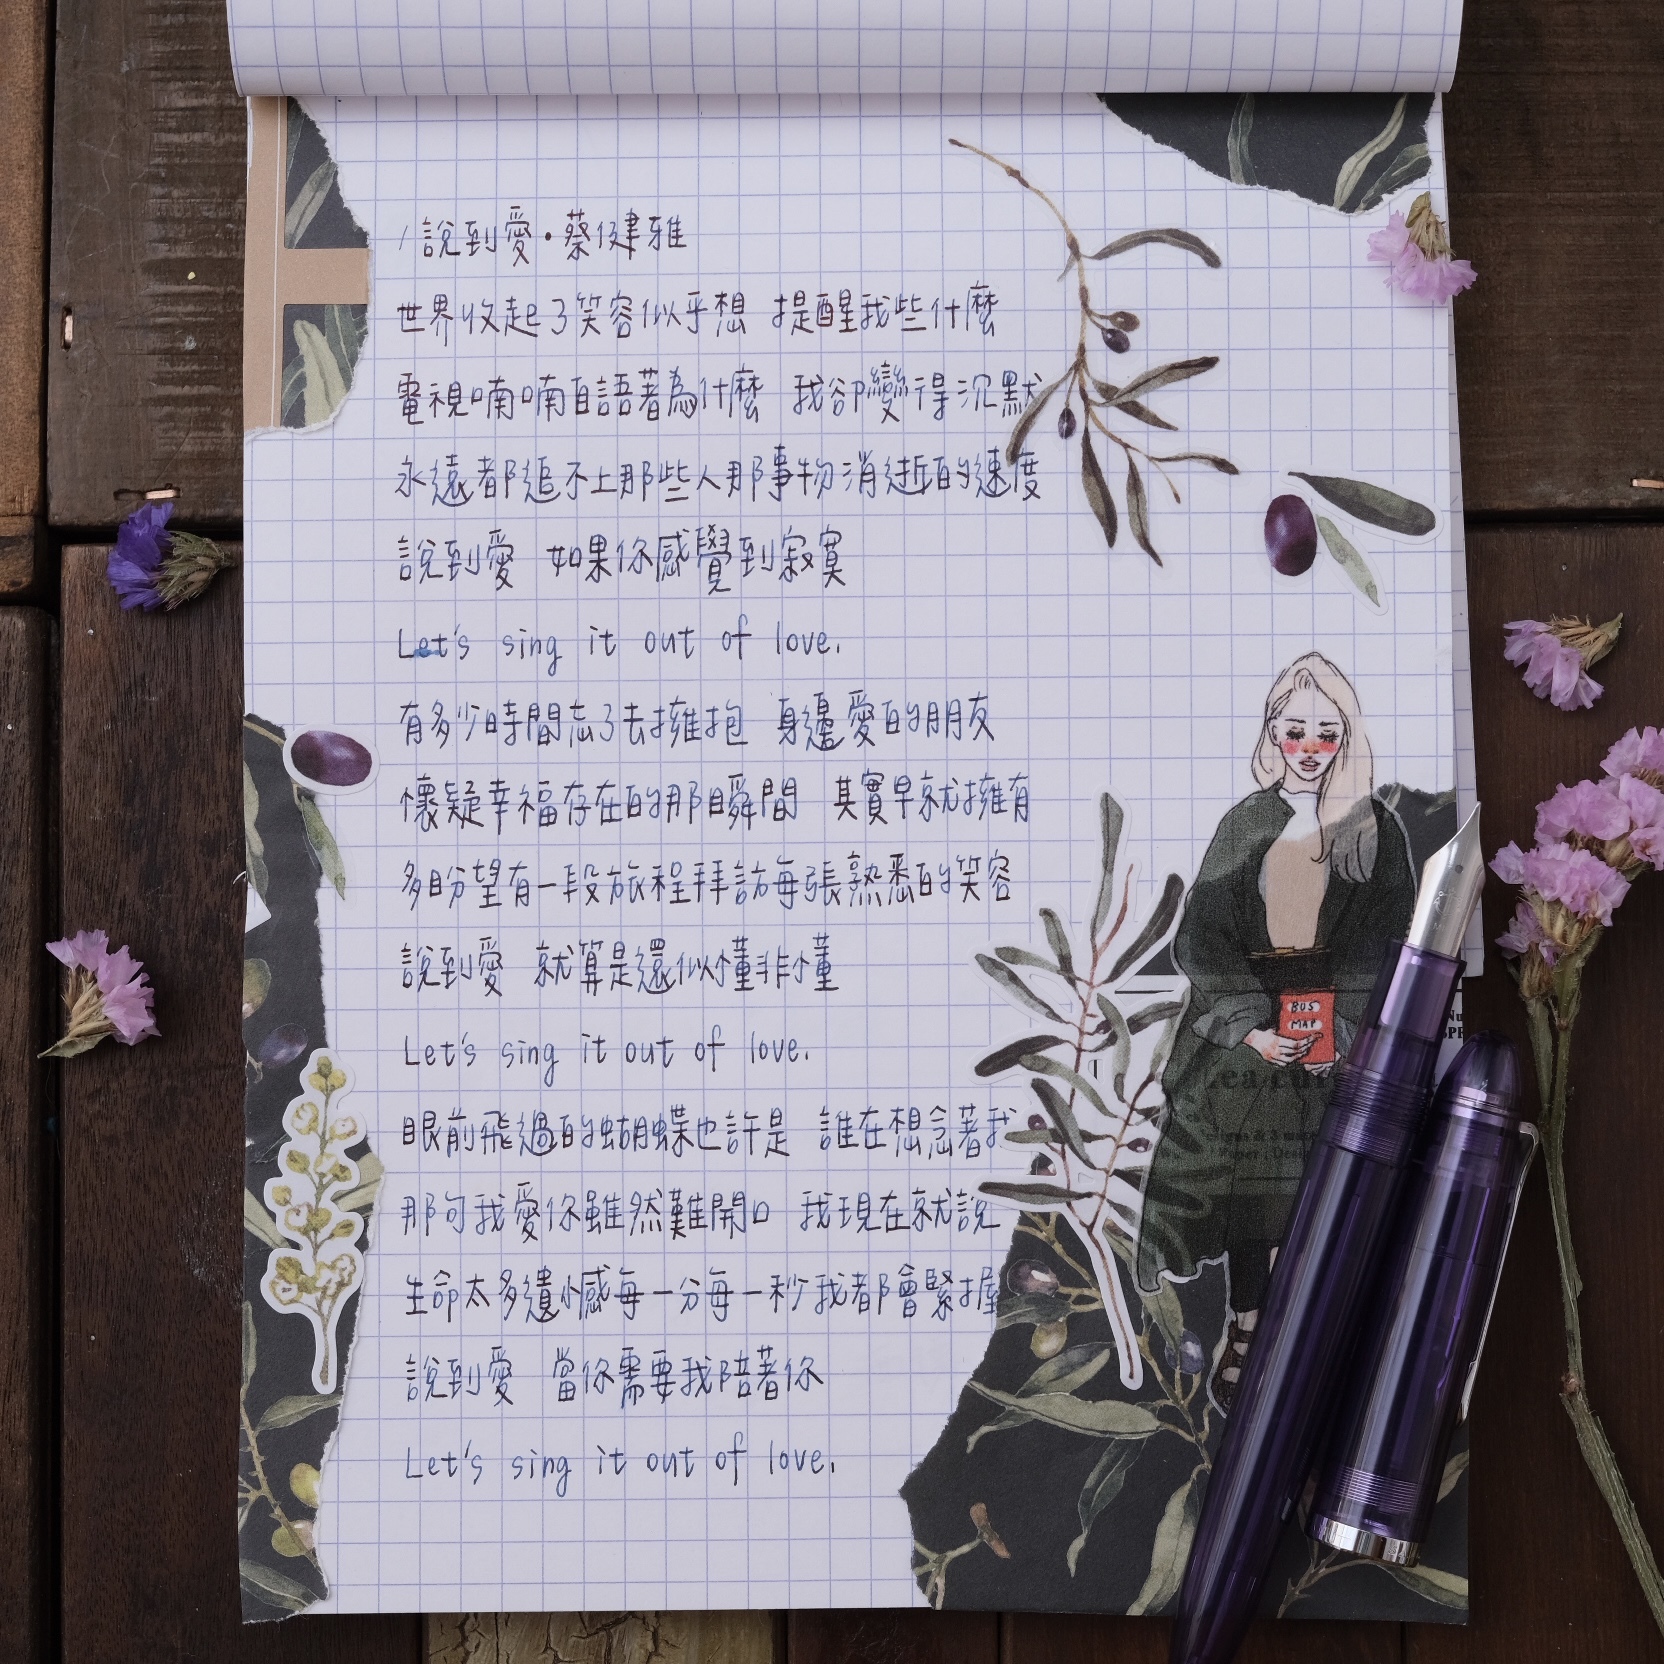 /說到愛·蔡健雅
世界收起了笑容似乎想 提醒我些什麼
電視喃喃自語著為什麼 我卻變得沉默
永遠都追不上那些人那事物消逝的速度
說到愛 如果你感覺到寂寞
Let's sing it out of love.
有多少時間忘了去擁抱 身邊愛的朋友
懷疑幸福存在的那瞬間 其實早就擁有
多盼望有一段旅程拜訪每張熟悉的笑容
說到愛 就算是還似懂非懂
Let's sing it out of love.
眼前飛過的蝴蝶也許是 誰在想念著我
那句我愛你雖然難開口 我現在就說
生命太多遺憾每一分每一秒我都會緊握
說到愛 當你需要我陪著你
Let's sing it out of love.
BUS
MAP